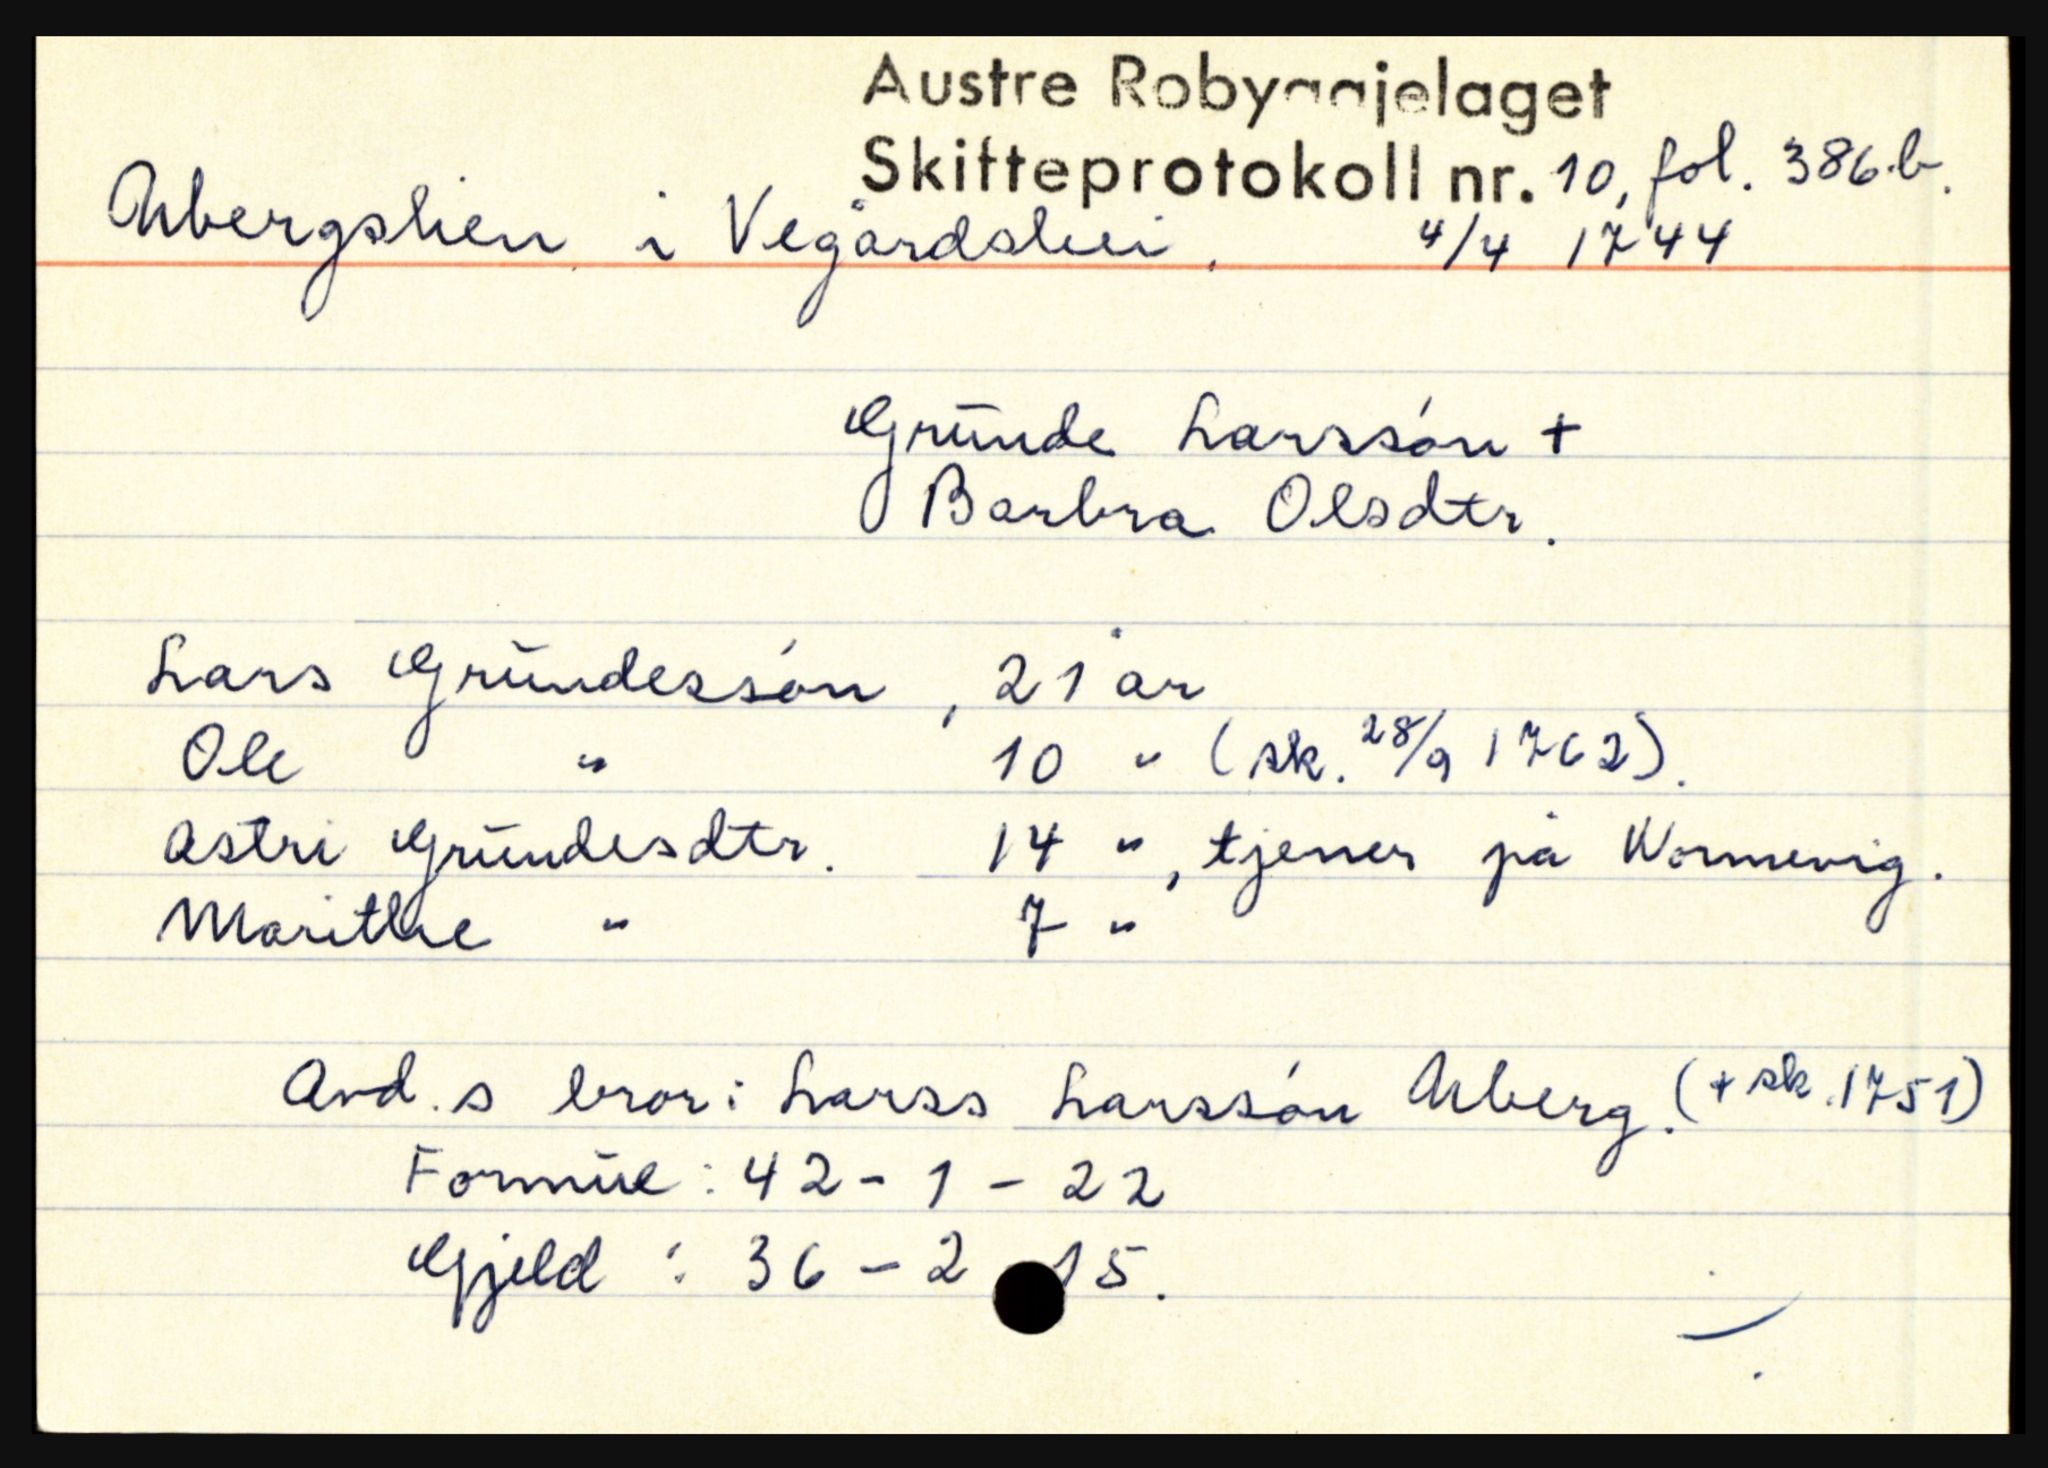 Austre Robyggjelaget
Skifteprotokoll nr. 10, fol. 386.b.
Ubergslien i Vegårdshei. 4/4 1744
Gründe Larssón +
Barbra Olsdtr.
Lars Gründessón, 21 år
Ole " 10 " (sk. 28/9 1762).
Astri Gründesdtr. 14 ", tjener på Wormevig.
Marithe " 7 "
Avd.s bror: Larss Larssón Uberg. (+ sk. 1751)
Formüe: 42 - 1 - 22
Gjeld: 36 - 2 15.